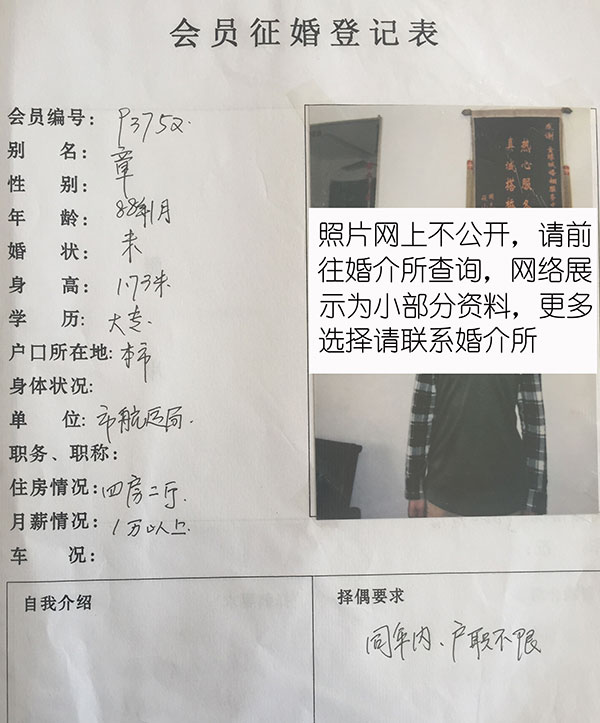 会员征婚登记表
会员编号: P3752.
别 名: 章
性 别:
年 龄: 88年1月
婚 状: 未
身 高: 1.73米
学 历: 大专.
户口所在地: 本市
身体状况:
单 位: 市航运局.
职务、职称:
住房情况: 四房二厅.
月薪情况: 1万以上.
车 况:
热心服务
真诚搭桥
照片网上不公开，请前
往婚介所查询，网络展
示为小部分资料，更多
选择请联系婚介所
自我介绍
择偶要求
同年内、户职不限